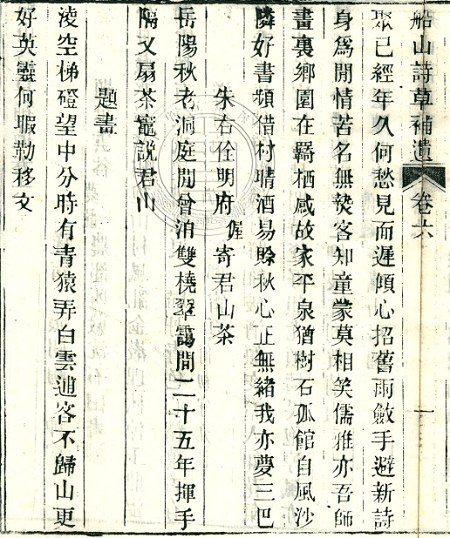 船山詩草補遺 卷六 十三
聚已經年久何愁見面遲傾心招舊雨斂手避新詩
身爲閒情苦名無褻客知童蒙莫相笑儒雅亦吾師
畫裏鄉園在羇栖感故家平泉猶樹石孤館自風沙
隣好書頻借村晴酒易賖秋心正無緒我亦夢三巴
朱右佺明府偓寄君山茶
岳陽秋老洞庭閒曾泊雙橈翠靄間二十五年揮手
隔又扇茶竈說君山
題畫
淩空梯磴望中分時有青猿弄白雲逋客不歸山更
好英靈何暇勒移文